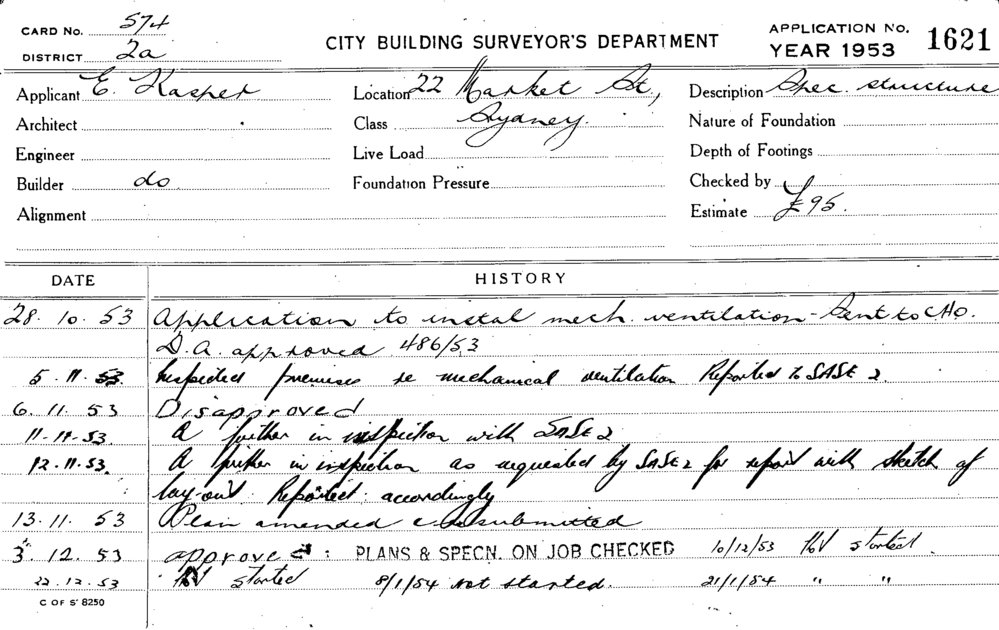 CARD No. 574
DISTRICT 2a
CITY BUILDING SURVEYOR'S DEPARTMENT
APPLICATION No. 1621
YEAR 1953
Applicant E. Kasper Location 22 Market St., Description Spec. structure
Architect Class Sydney. Nature of Foundation
Engineer Live Load Depth of Footings
Builder do Foundation Pressure Checked by
Alignment Estimate £95.
DATE HISTORY
28. 10. 53 Application to instal mech. ventilation - Sent to C.H.O.
D.A. approved 486/53
5. 11. 53. Inspected premises re mechanical ventilation Reported to SASE 2.
6. 11. 53 Disapproved
11-11-53. A further in inspection with SASE 2
12.11.53. A further in inspection as requested by SASE 2 for report with sketch of
lay-out. Reported accordingly
13. 11. 53 Plan amended & resubmitted
3. 12. 53 approved : PLANS & SPECN. ON JOB CHECKED 10/12/53 started.
22.12.53 started 8/1/54 not started. 21/1/54 " "
C OF S 8250